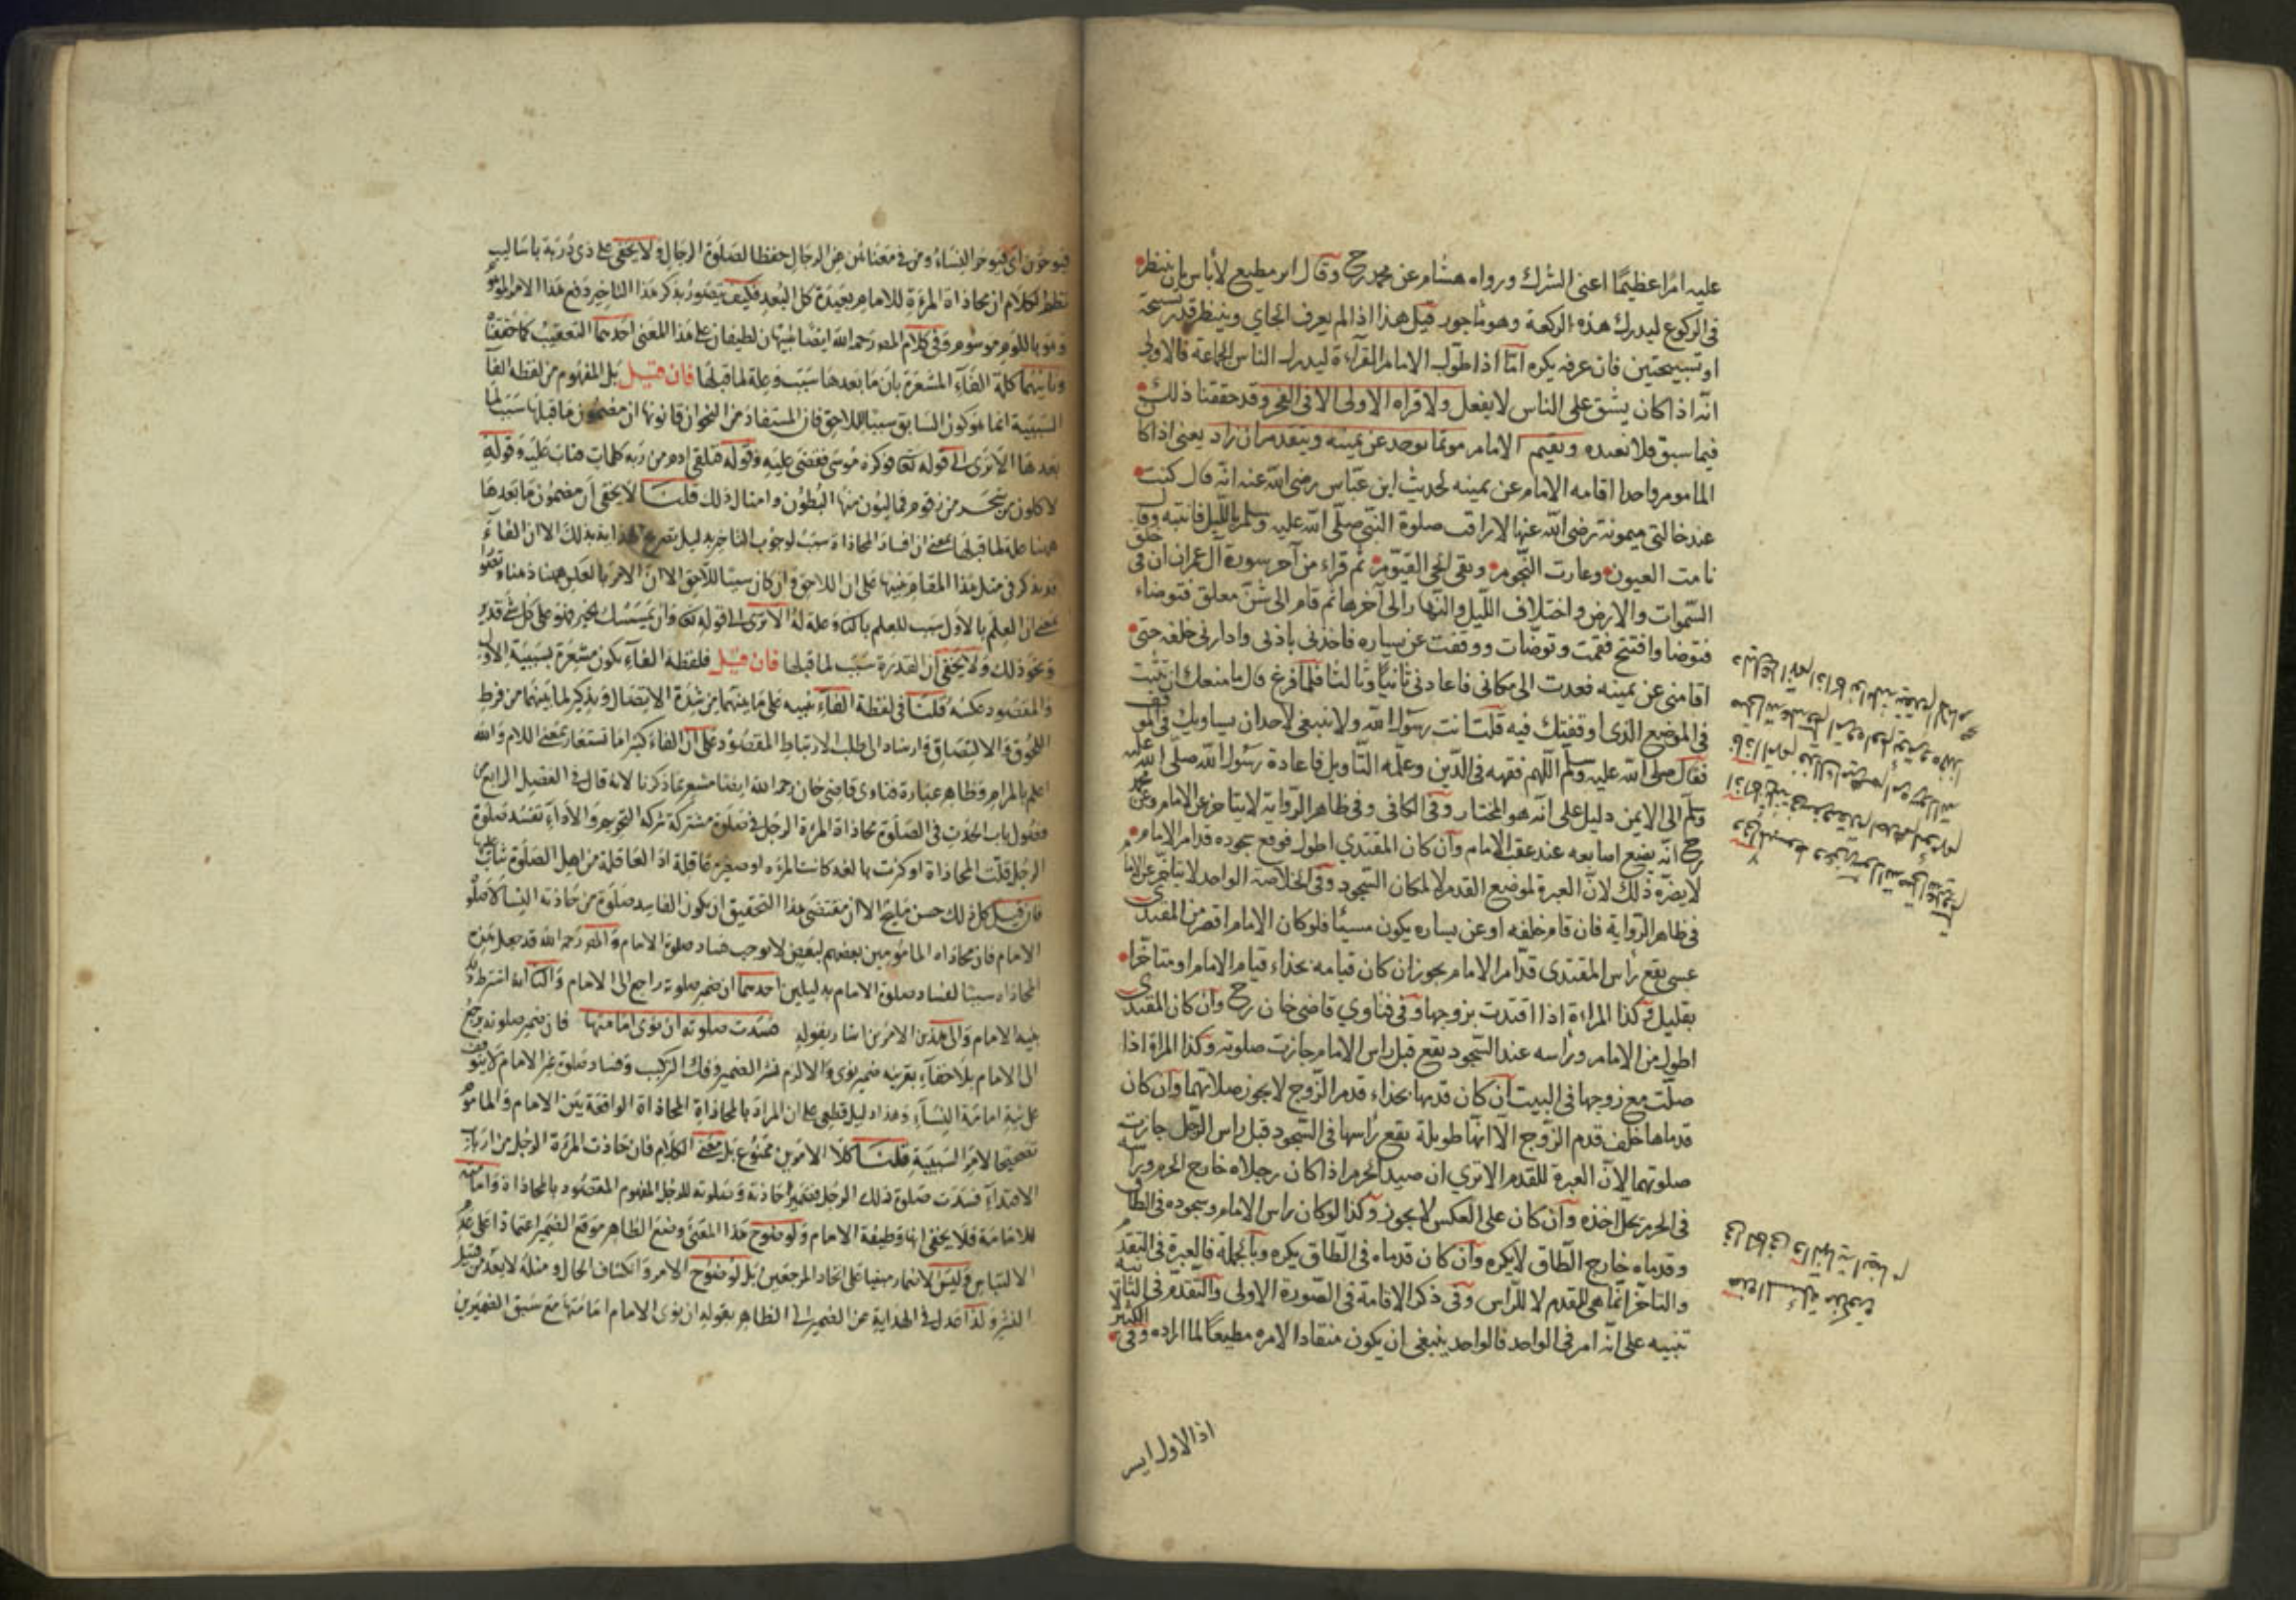 عليه امرا عظيما اعنى الشرك ورواه هشام عن محمد رح وقال ابو مطيع لا بأس بان ينتظر
فى الركوع ليدرك هذه الركعة وهو مأجور قيل هذا اذا لم يعرف الجاى وينتظر قدر تسبيحة
او تسبيحتين فان عرفه يكره اما اذا طول الامام القرآءة ليدرك الناس الجماعة فالاولى
انه اذا كان يشق على الناس لا يفعل ولا قراه الاولى الا فى الفجر وقد حققنا ذلك
فيما سبق فلا نعيده ويقيم الامام مؤتما توحد عن يمينه ويتقدم ان زاد يعنى اذا كا
المأموم واحدا اقامه الامام عن يمينه لحديث ابن عباس رضى الله عنه انه قال كنت
عند خالتى ميمونة رضى الله عنها لاراقب صلوة النبى صلى الله عليه وسلم بالليل فانتبه وقال
نامت العيون وغارت النجوم وبقى الحى القيوم ثم قراء من آخر سورة آل عمران ان فى خلق
السموات والارض واختلاف الليل والنهار الى آخرها ثم قام الى شن معلق فتوضاء
فتوضا وافتتح فقمت وتوضات ووقفت عن يساره فاخذنى باذنى وادارنى خلفه حتى
اقامنى عن يمينه فعدت الى مكانى فاعادنى ثانيا وثالثا فلما فرغ قال ما منعك ان تثبت
فى الموضع الذى اوقفتك فيه قلت انت رسول الله ولا ينبغى لاحد ان يساويك فى الموقف
فقال صلى الله عليه وسلم اللهم فقهه فى الدين وعلمه التاويل فاعادة رسول الله صلى الله عليه
وسلم الى الايمن دليل على انه هو المختار وفى الكافى وفى ظاهر الرواية لا يتاخر عن الامام وعن محمد
رح انه يضع اصابعه عند عقب الامام وان كان المقتدي اطول فوقع سجوده قدام الامام
لا يضره ذلك لان العبرة لموضع القدم لا لمكان السجود وفى الخلاصة الواحد لا يتأخر عن الامام
فى ظاهر الرواية فان قام خلفه او عن يساره يكون مسيئا فلو كان الامام اقصر من المقتدى
عسى يقع رأس المقتدى قدام الامام يجوز ان كان قيامه بحذاء قيام الامام او متأخرا
بقليل وكذا المراءة اذا اقتدت بزوجها وفى فتاوي قاضى خان رح وان كان المقتدى
اطول من الامام ورأسه عند السجود يقع قبل راس الامام جازت صلوته وكذا المراة اذا
صلت مع زوجها فى البيت ان كان قدمها بحذاء قدم الزوج لا يجوز صلاتهما وان كان
قدماها خلف قدم الزوج الا انها طويلة يقع رأسها فى السجود قبل راس الرجل جازت
صلوتهما لان العبرة للقدم الا ترى ان صيد الحرم اذا كان رجلاه خارج الحرم ورأسه
فى الحرم يحل اخذه وان كان على العكس لا يجوز وكذا لو كان راس الامام وسجوده فى الطاق
وقدماه خارج الطاق لا يكره وان كان قدماه فى الطاق يكره وبالجملة فالعبرة فى التقدم
والتاخر انما هى للقدم لا للرأس وفى ذكر الاقامة فى الصورة الاولى والتقدم فى الثانية
تنبيه على انه امر فى الواحد فالواحد ينبغى ان يكون منقادا لامره مطيعا لما اراده وفى الكثير
اذ الاول ايسر
فيؤخرون اى فيؤخر النساء ومن فى معناهن من الرجال حفظا لصلوة الرجال ولا يخفى على ذى دربة باساليب
الكلام ان محاذاة المرءة للامام بعيدة كل البعد فكيف يتصور بذكر هذا التاخير دفع هذا الامر
وهو باللوم موسوم وفى كلام المص رحمه الله ايضا تنبيهان لطيفان على هذا المعنى احدهما التعقيب كما حققنا
وثانيهما كلمة الفآء المشعرة بان ما بعدها سبب وعلة لما قبلها فان قيل بل المفهوم من لفظه الفا
السببية انما هو كون السابق سببا للاحق فان المستفاد من النحو ان قانونها ان مضمون ما قبلها سبب لما
بعدها الا ترى الى قوله تعا فوكزه موسى فقضى عليه وقوله فتلقى ادم من ربه كلمات فتاب عليه وقوله
لاكلون من شجر من زقوم فمالؤن منها البطون وامثال ذلك قلنا لا يخفى ان مضمون ما بعدها
ههنا علة لما قبلها بمعنى ان افساد المحاذاة سبب لوجوب التاخير بدليل تصريح الهداية بذلك الا ان الفآء
قد يذكر فى مثل هذا المقام تنبيها على ان اللاحق وان كان سببا للاحق الا ان الامر بالعكس ههنا
بمعنى ان العلم بالاول سبب للعلم بالثا وعلة له الا ترى الى قوله تعا وان يمسسك بخير فهو على كل شئ قدير
ونحو ذلك ولا يخفى ان القدرة سبب لما قبلها فان قيل فلفظه الفآء يكون مشعرة بسببية الاول
والمقصود عكسه قلنا فى لفظة الفآء تنبيه على ما بينهما من شدة الاتصال وتذكير لما بينهما من فرط
اللحوق والالتصاق وارشاد الى طلب الارتباط المقصود على ان الفاء كثيرا ما تستعار بمعنى اللام والله
اعلم بالمرام وظاهر عبارة فتاوى قاضى خان رحمه الله ايضا مشعر بما ذكرنا لانه قال فى الفصل الرابع من
فصول باب الحدث فى الصلوة محاذاة المرءة الرجل فى صلوة مشتركة شركة التحريم والأداء تفسد صلوة
الرجل قلت المحاذاة او كثرت بالغة كانت المرءه او صغيرة عاقلة اذ العاقلة من اهل الصلوة
فان قيل كل ذلك حسن مليح الا ان مقتضى هذا التحقيق ان يكون الفاسد صلوة من حاذته النسا لا صلوة
الامام فان محاذاه المأمومين بعضهم لبعض لا توجب فساد صلوة الامام والمص رحمه الله قد جعل هذه
المحاذاه سببا لفساد صلوة الامام بدليلين احدهما ان ضمير صلوته راجع الى الامام والثا انه اشترط
نية الامام والى هذين الامرين اشار بقوله فسدت صلوته ان نوى امامتها فان ضمير صلوته يرجع
الى الامام بلا خفآء بقرينه ضمير نوى والا لزم نشر الضمير وفك التركيب وفساد صلوة غير الامام لا يتوقف
على نية امامة النسآء وهذا دليل قطعى على ان المراد بالمحاذاة المحاذاة الواقعة بين الامام والماموم
تصحيحا لامر السببية قلنا كلا الامرين ممنوع بل معنى الكلام فان حاذت المرءة الرجل من ارباب
الاقتدآء فسدت صلوة ذلك الرجل فضمير حاذته وصلوته للرجل المفهوم المقصود بالمحاذاة واما نيته
للامامة فلا يخفى انها وظيفة الامام ولوضوح هذا المعنى وضع الظاهر موضع الضمير اعتمادا على عدم
الالتباس وليس الاضمار مبنيا على اتحاد المرجعين بل لوضوح الامر وانكشاف الحال ومثله لا يعد من قبيل
النشر ولذا عدل فى الهداية عن الضمير الى الظاهر بقوله ان نوى الامام امامتها مع سبق الضميرين